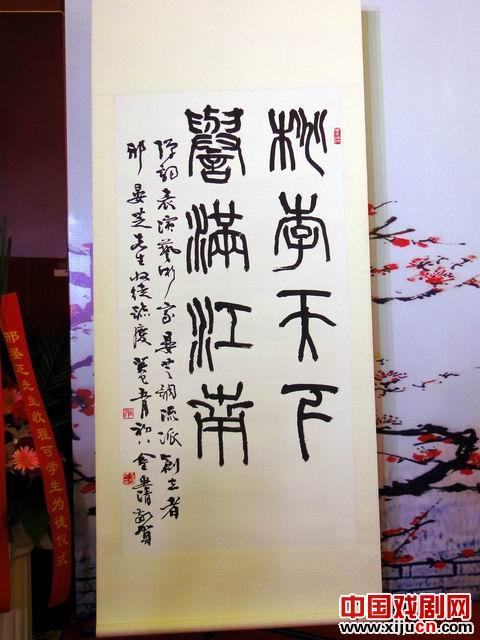 桃李天下
譽滿江南
弹词表演藝術家晏芝调流派創立者
邢晏芝先生收徒誌慶 癸巳五月初八
敬賀
邢晏芝先生收程可学生为徒仪式
中国戏剧网
www.xijucn.com